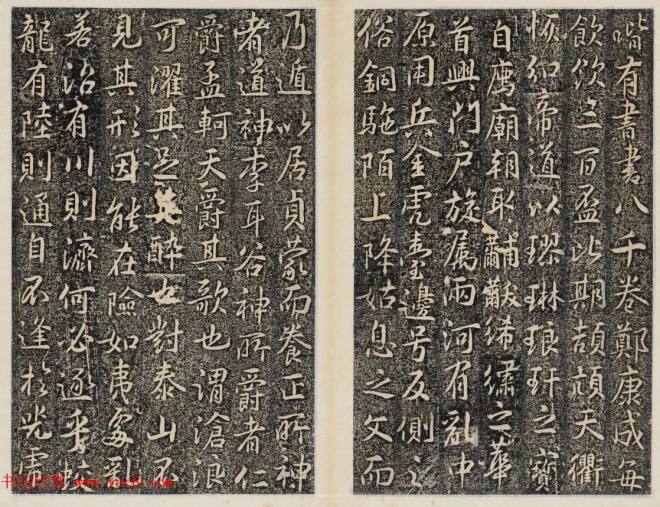 喈有書書八千卷鄭康成每
飲飲三百盃此期頡頏天衢
恢細帝道以璆琳琅玕之寶
自廌廟朝取黼黻絺繡之華
首興門戶旋屬兩河有亂中
原用兵金虎臺邊号反側之
俗銅駞陌上降姑息之文而
乃遁以居貞蒙而養正所神
者道神李耳谷神所爵者仁
爵孟軻天爵其歌也謂滄浪
可濯其足其醉也對泰山不
見其形因能在險如夷處亂
若治有川則濟何必逐乎蛟
龍有陸則通自不逢於兕虎
书法欣赏 www.yac8.com